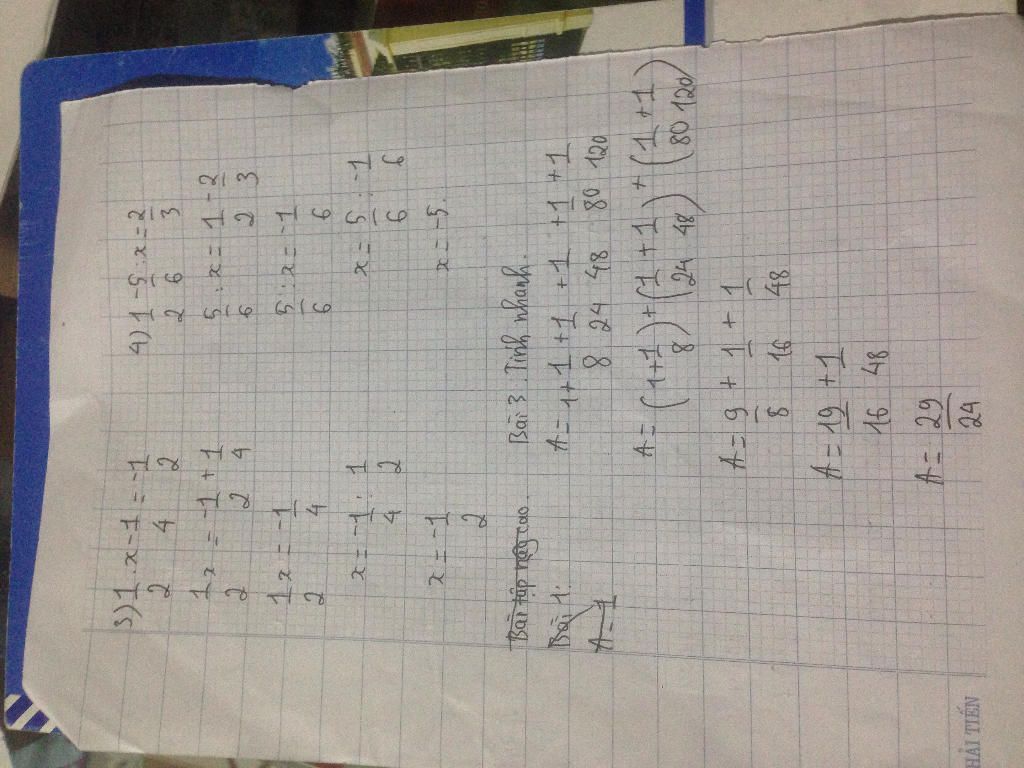 3) 1/2 . x - 1/4 = -1/2
1/2 x = -1/2 + 1/4
1/2 x = -1/4
x = -1/4 : 1/2
x = -1/2
4) 1/2 - 5/6 : x = 2/3
5/6 : x = 1/2 - 2/3
5/6 : x = -1/6
x = 5/6 : -1/6
x = -5.
Bài tập nâng cao.
Bài 1:
A = 1
Bài 3. Tính nhanh.
A = 1 + 1/8 + 1/24 + 1/48 + 1/80 + 1/120
A = (1 + 1/8) + (1/24 + 1/48) + (1/80 + 1/120)
A = 9/8 + 1/16 + 1/48
A = 19/16 + 1/48
A = 29/24
HẢI TIẾN